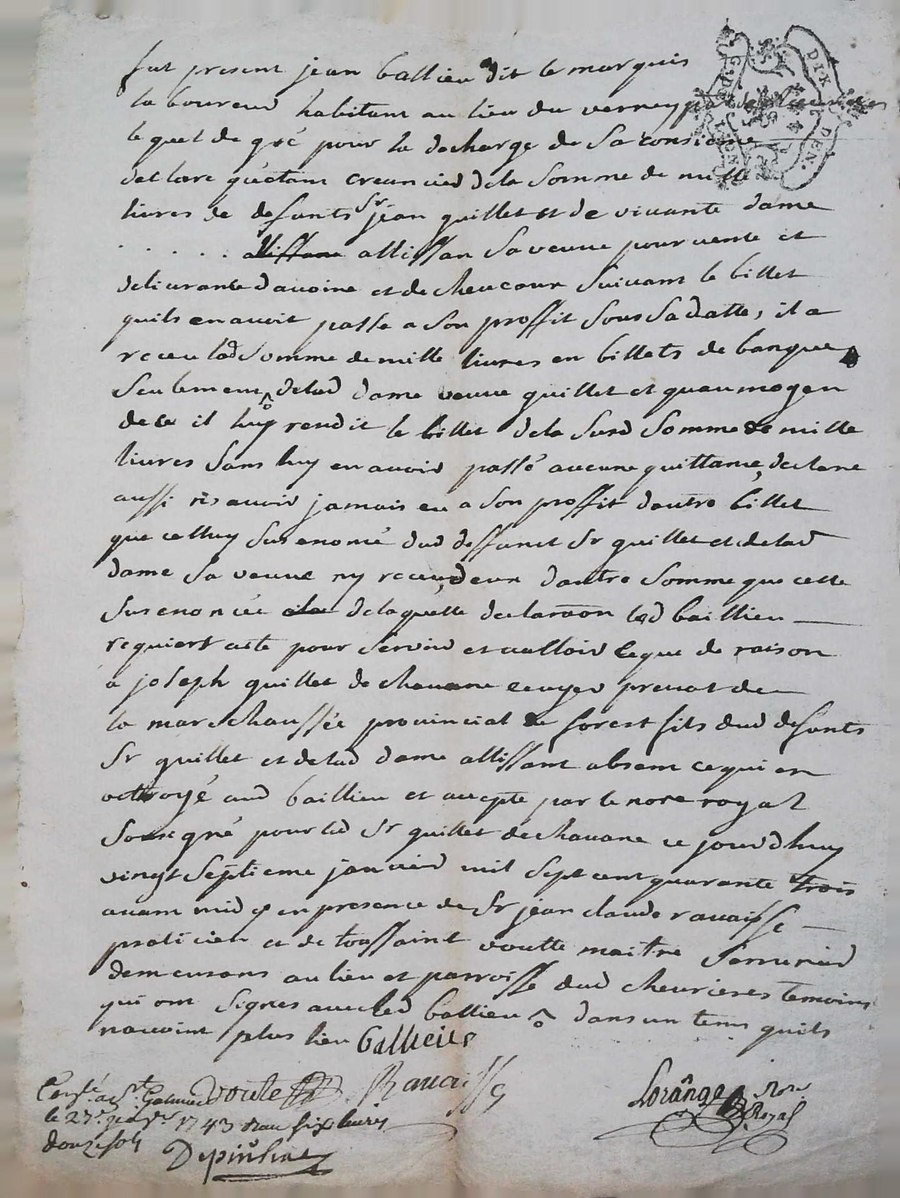 fut present jean ballieu dit le marquis
laboureur habitant au lieu du verney
lequel de gré pour la decharge de sa consience
declare quetant creancier de la somme de mille
livres de defunts sr jean guillet et de vivante dame
. . . . . allissan sa veuve pour vente et
delivrance davoine et de chevaux suivant le billet
quils en avoit passé a son proffit sous sa datte, il a
receu lad somme de mille livres en billets de banque
seulement de lad dame veuve guillet et quau moyen
de ce il luy rendit le billet de la susd somme de mille
livres sans luy en avoir passé aucune quittance, declare
aussi navoir jamais eu a son proffit dautre billet
que celluy sus enomé dud deffunct sr guillet et de lad
dame sa veuve ny receu deux dautre somme que celle
sus enoncée de laquelle declaraon led baillieu
requiert acte pour servir et valloir ce que de raison
a joseph guillet de chavane ecuyer prevot de
la marechaussée provincial de forest fils dud defunts
sr guillet et de lad dame allissant absent ce qui en
octroyé aud baillieu et accepté par le nore royal
sousigné pour led sr guillet de chavane ce jourdhuy
vingt septieme janvier mil sept cent quarante trois
avant midy en presence de sr jean claude ravaisse
praticien et de toussaint voutte maitre serrurier
demeurans au lieu et parroisse dud chevrieres temoins
qui ont signes avec led ballieu dans un tems quils
navoint plus lieu ballieu
voute Ravaisse Lorânge Nore Royal
Conslé a St Galmier
le 27e janver 1743 Reçu six livres
douze sols
Depinhac